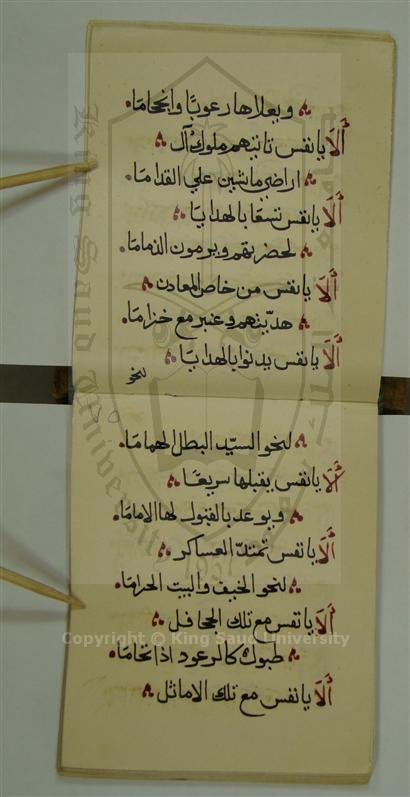 ويعلاها رعوبًا وانجحاما
ألا يا نفس تاتيهم ملوك آل
اراضي ماشين علي القداما
ألا يا نفس تسعا بالهدايا
لحضرتهم ويرمون الذماما
ألا يا نفس من خاص المعادن
هديتهم وعنبر مع خزاما
ألا يا نفس يدنوا بالهدايا
لنحو
لنحو السيّد البطل الهماما
ألا يا نفس يقبلها سريعًا
ويوعد بالقبول لها الاماما
ألا يا نفس تمتدّ العساكر
لنحو الخيف والبيت الحراما
ألا يا نفس مع تلك الجحافل
طبول كالرعود اذا تحاما
ألا يا نفس مع تلك الاماثل
Copyright © King Saud University
King Saud University
1957